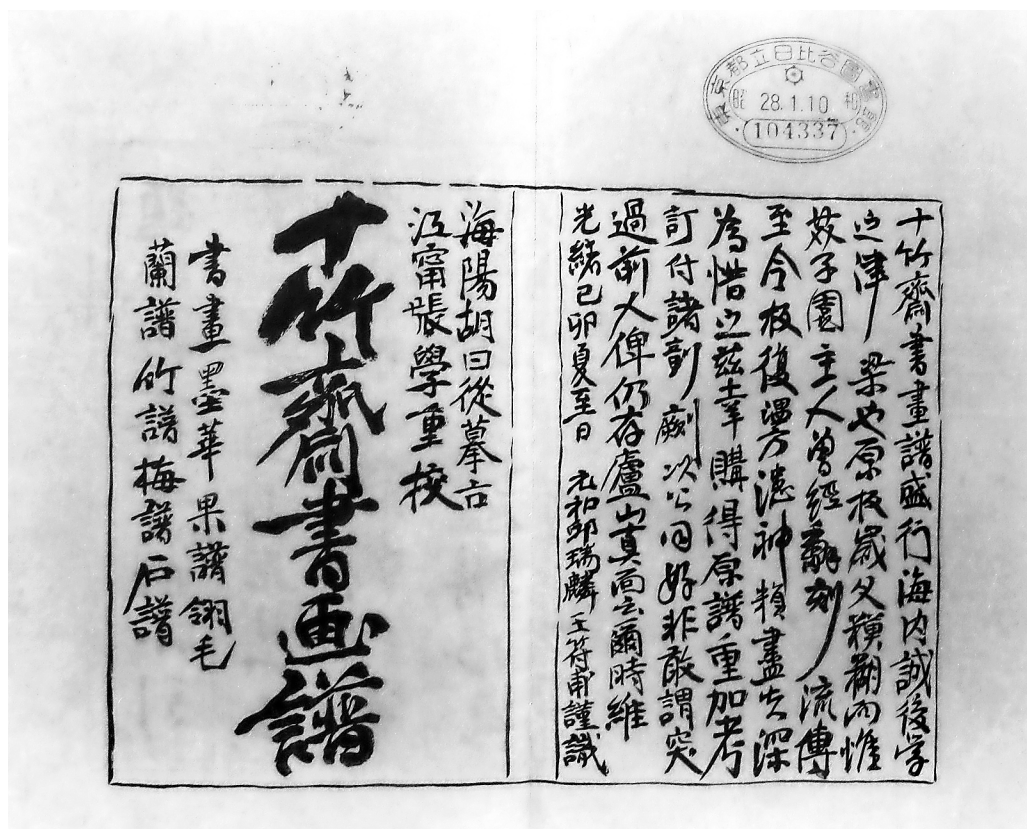 東京都立日比谷圖書館
昭和 28.1.10
104337
十竹齋書畫譜盛行海内誠後学
之津梁也原板歲久模糊而惟
子園主人曾經翻刻流傳
至今板復漫漶神精盡失深
為惜之茲幸購得原譜重加考
訂付諸剞劂以公同好非敢謂突
過前人俾仍存廬山真面云爾時維
光緒己卯夏至日 元和邱瑞麟玉符甫謹識
海陽胡曰從摹古
江甯張學重校
十竹齋書画譜
書畫墨華果譜翎毛
蘭譜竹譜梅譜石譜